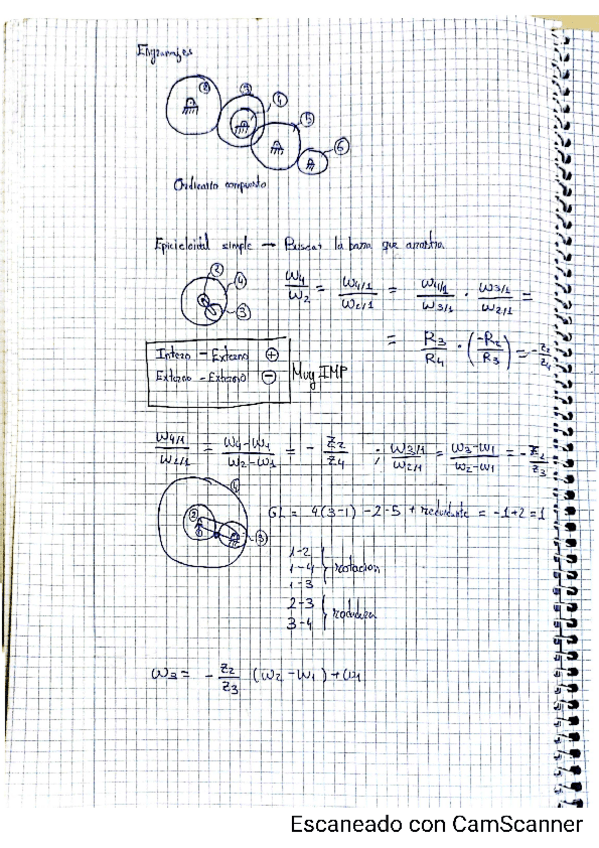 Engranajes
2 3 4 5 6
Ordinario compuesto
Epicicloidal simple → Buscar la barra que arrastra.
2 4 3
ω4/ω2 = ω4/1/ω2/1 = ω4/1/ω3/1 · ω3/1/ω2/1 =
= R3/R4 · (-R2/R3) = -z2/z4
Interno - Externo +
Externo - Externo - Muy IMP
ω4/1/ω2/1 = ω4-ω1/ω2-ω1 = - z2/z4 ; ω3/1/ω2/1 = ω3-ω1/ω2-ω1 = - z2/z3
4 2 3
GL = 4(3-1) - 2·5 + redundante = -1+2=1
1-2
1-4 } rotacion
1-3
2-3
3-4 } rodadura
ω3 = - z2/z3 (ω2 - ω1) + ω1
Escaneado con CamScanner